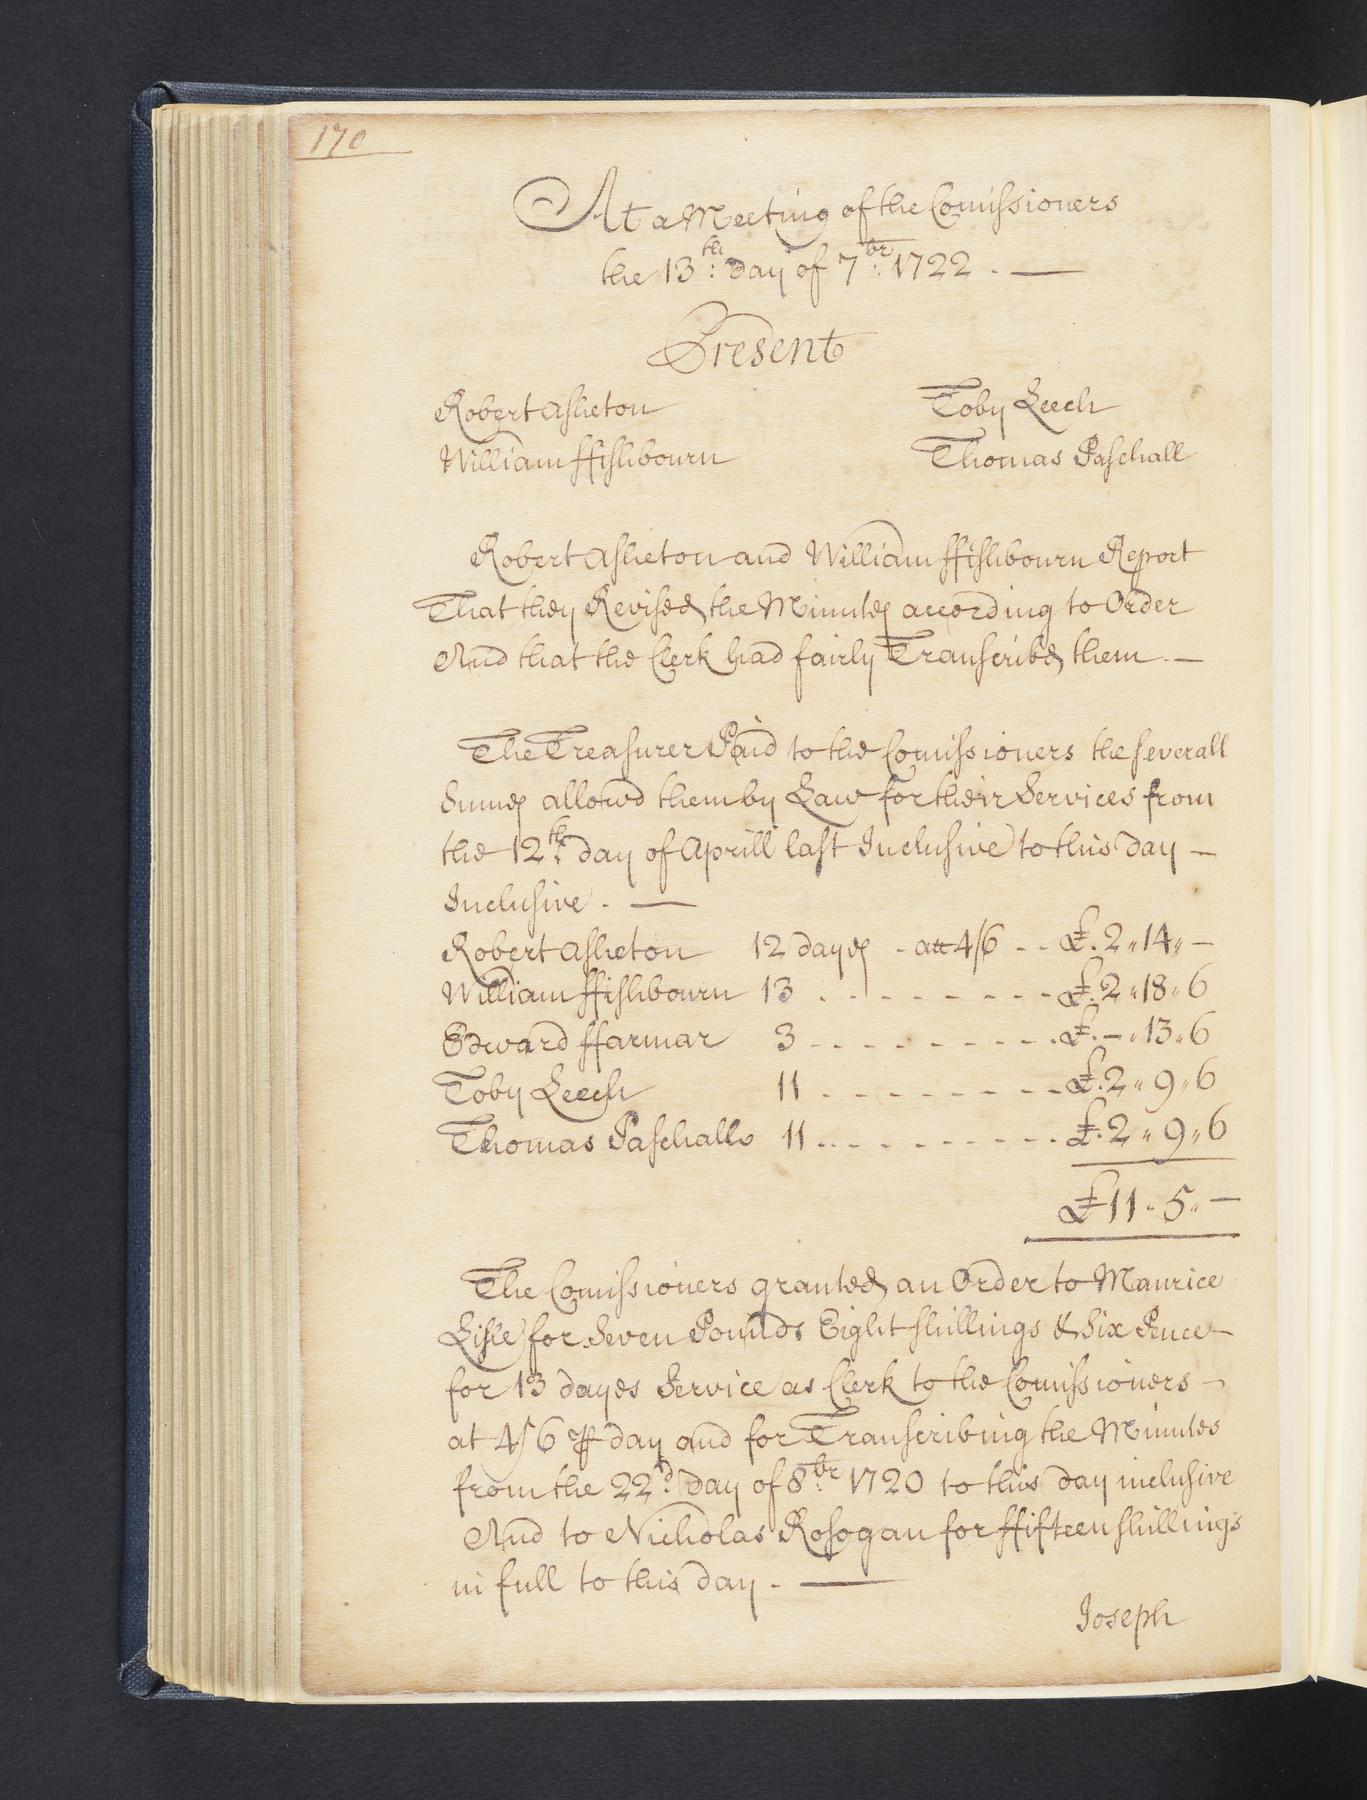 170
At a Meeting of the Comissioners
the 13th: day of 7br: 1722 . —
Present
Robert Asheton Toby Leech
William ffishbourn Thomas Paschall
Robert Asheton and William ffishbourn Report
That they Revised the Minutes according to Order
And that the Clerk had fairly Transcribd them . —
The Treasurer Paid to the Comissioners the severall
Summes allowd them by Law for their Services from
the 12th: day of Aprill last Inclusive to this day —
Inclusive . —
Robert Asheton 12 dayes - att 4/6 - - £. 2 " 14 " —
William ffishbourn 13 . - - - - - - - - £. 2 " 18 " 6
Edward ffarmar 3 - - - - - - - - - . £. — " 13 " 6
Toby Leech 11 . - - - - - - - - £. 2 " 9 " 6
Thomas Paschall 11 . . - - - - - - - - £. 2 " 9 " 6
£ 11 " 5 " —
The Comissioners granted an Order to Maurice
Lisle for Seven Pounds Eight shillings & Six Pence —
for 13 dayes Service as Clerk to the Comissioners —
at 4/6 ⅌ day and for Transcribing the Minutes
from the 22d: day of 8br: 1720 to this day inclusive
And to Nicholas Rosogan for ffifteen shillings
in full to this day . —
Joseph